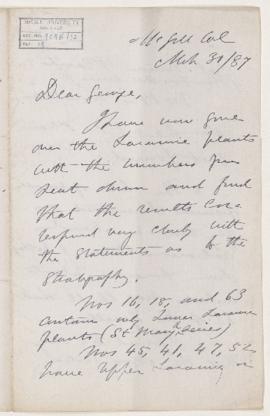 McGill Col
Mch 30/87
Dear George,
I have now gone
over the Laramie plants
with the numbers you
sent down and find
that the results cor
respond very closely with
the statements as to the
stratigraphy.
Nos 16, 18, and 63
contain only Lower Laramie
plants (St Mary Series)
Nos 45, 41, 47, 52
have Upper Laramie or